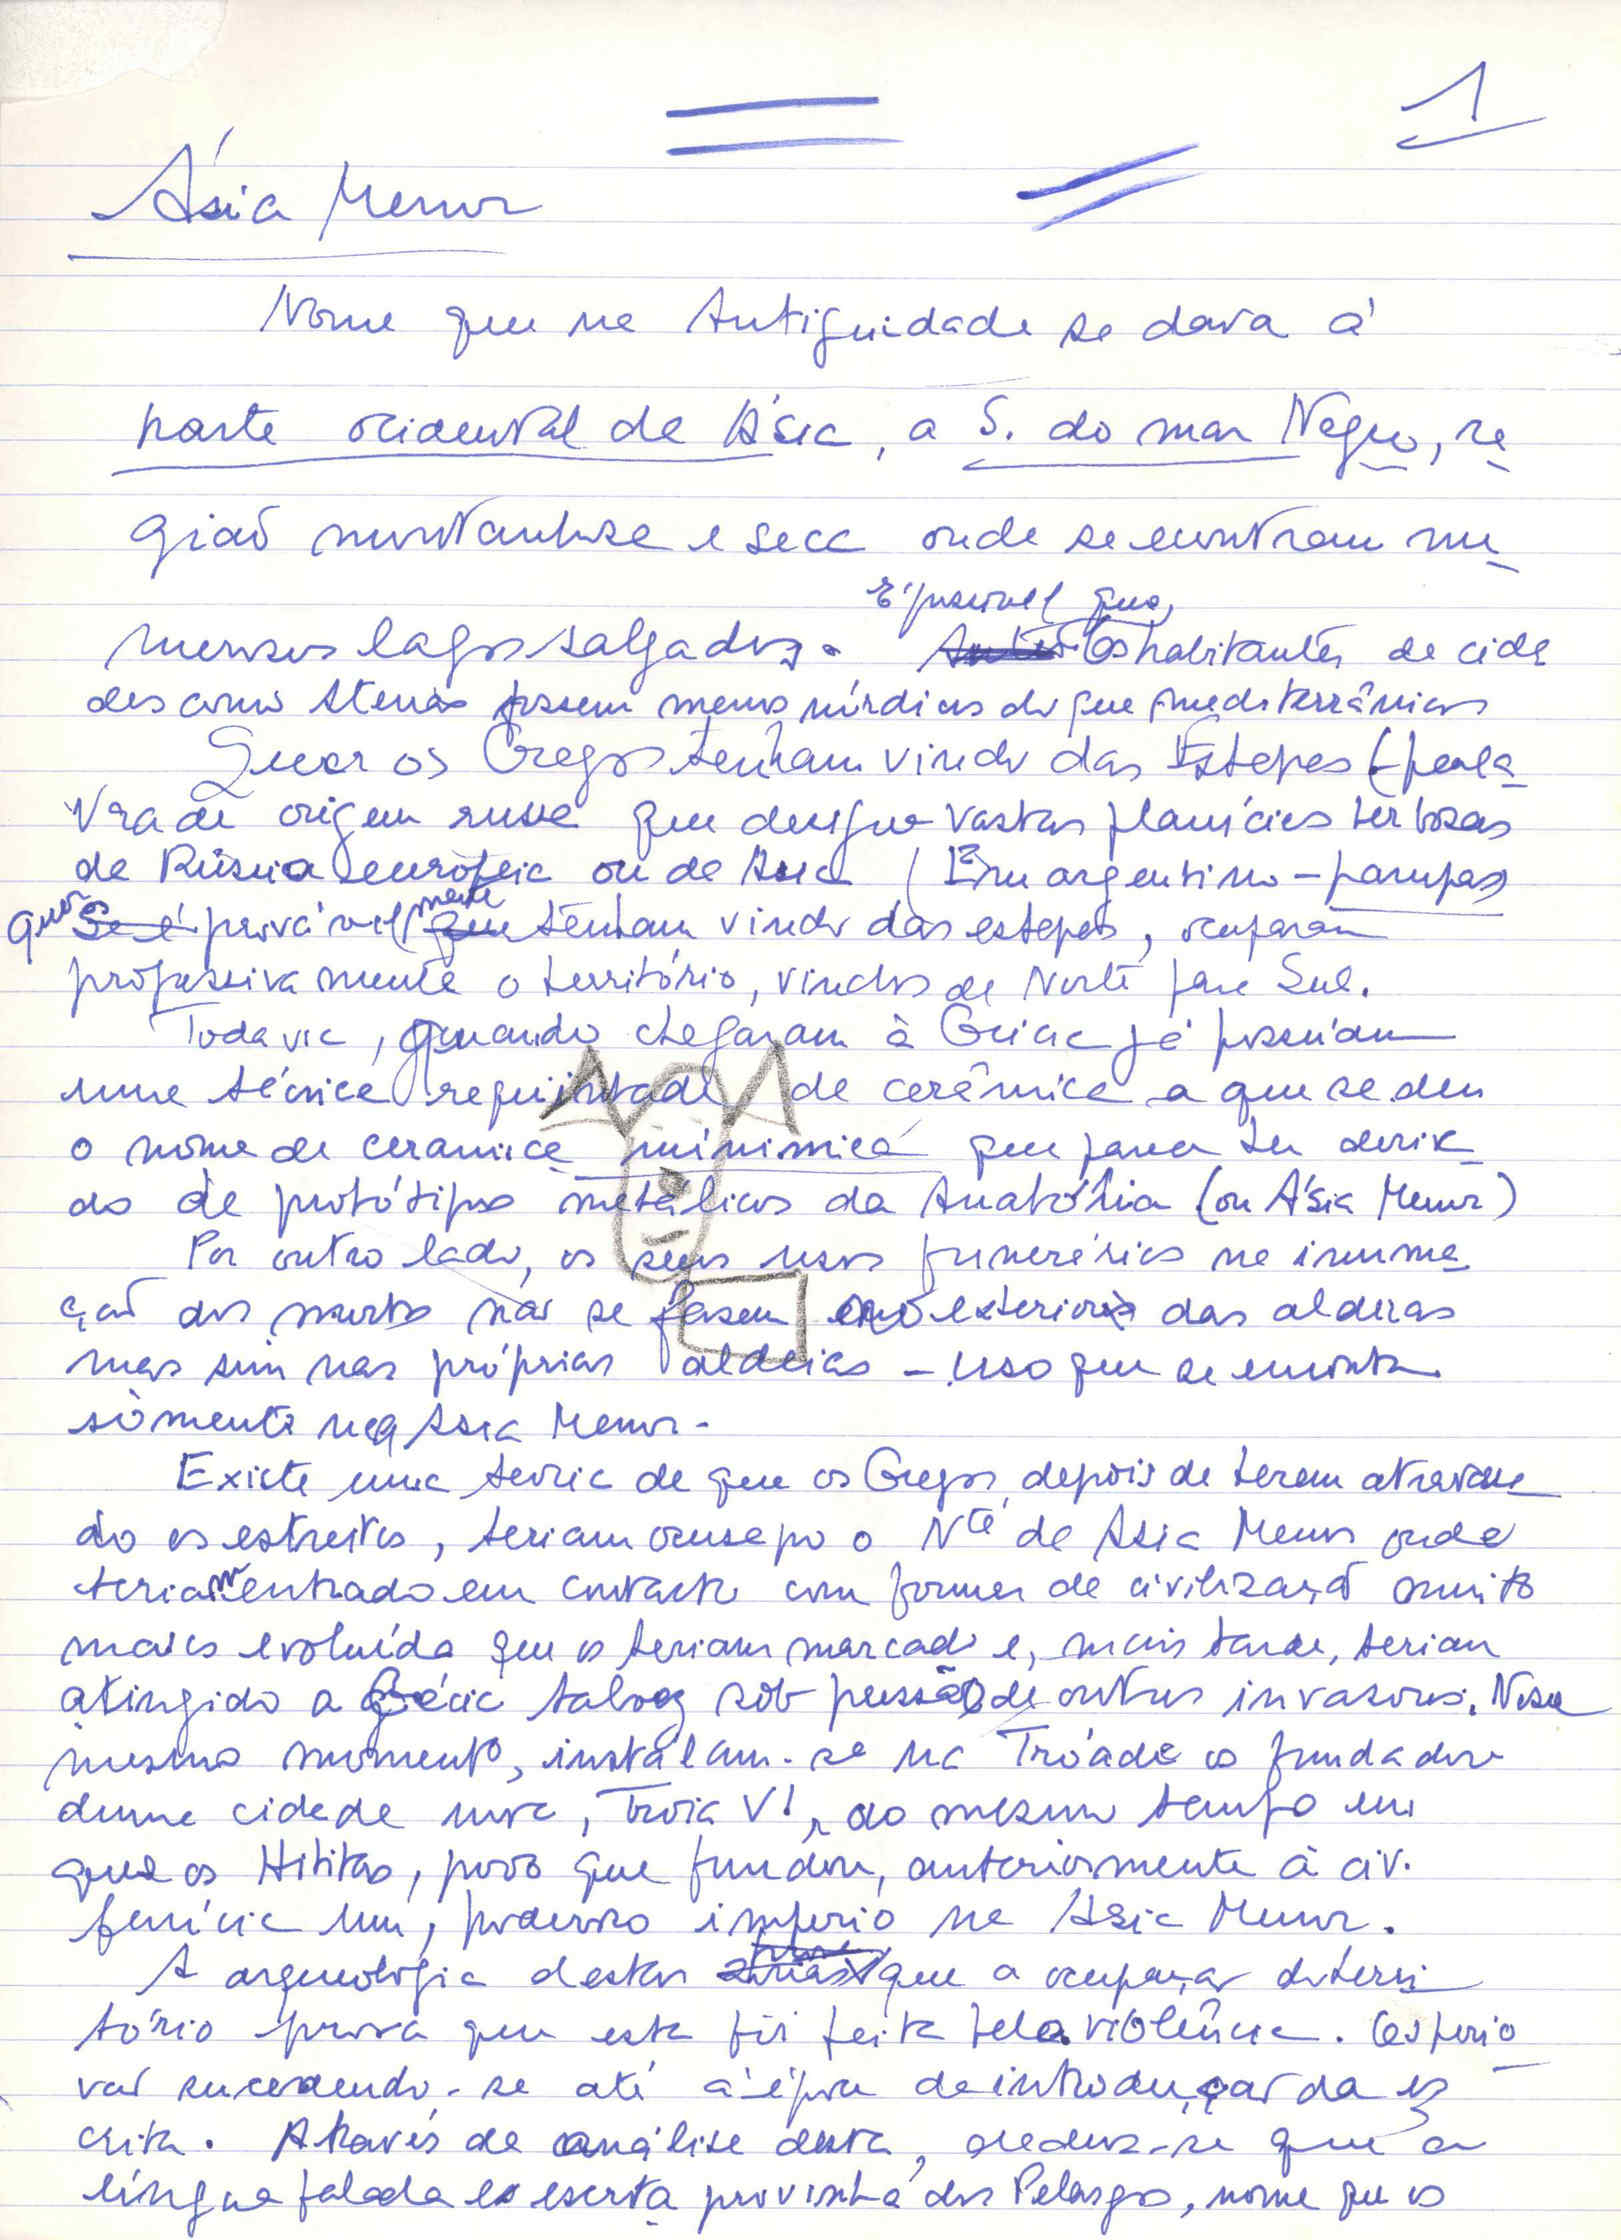 1
Ásia Menor
Nome que na Antiguidade se dava à
parte ocidental da Ásia, a S. do mar Negro, re
gião montanhosa e seca onde se encontram nu
É possível que,
merosos lagos salgados. Os habitantes de cida
des como Atenas fossem menos nórdicos do que mediterrânicos
Quer os Gregos tenham vindo das Estepes (pala
vra de origem russa que designa vastas planícies herbosas
da Rússia europeia ou da Ásia (Em argentino - pampas)
quer os provávelmente tenham vindo das estepes, ocuparam
progressivamente o território, vindos de Norte para Sul.
Todavia, quando chegaram à Grécia já possuíam
uma técnica requintada de cerâmica a que se deu
o nome de ceramica que parece ter deriva
do de protótipos metálicos da Anatólia (ou Ásia Menor)
Por outro lado, os seus usos funerários na inuma
ção dos mortos não se fazem no exterior das aldeias
mas sim nas próprias aldeias - uso que se encontra
sòmente na Asia Menor.
Existe uma teoria de que os Gregos, depois de terem atravessa
do os estreitos, teriam o Nte da Asia Menor onde
teriam entrado em contacto com formas de civilização muito
mais evoluída que os teriam marcado e, mais tarde, teriam
atingido a Grécia talvez sob pressão de outros invasores. Nesse
mesmo momento, instalam-se na Tróade os fundadores
duma cidade nova, Troia VI, ao mesmo tempo em
que os Hititas, povo que fundou, anteriormente à civ.
fenícia um, poderoso imperio na Asia Menor.
A arqueologia destas que a ocupação do terri
tório prova que esta foi feita pela violência. Os
vão sucedendo-se até à época da introdução da es
crita. Através da análise desta, que a
língua falada e escrita provinha dos Pelasgos, nome que os